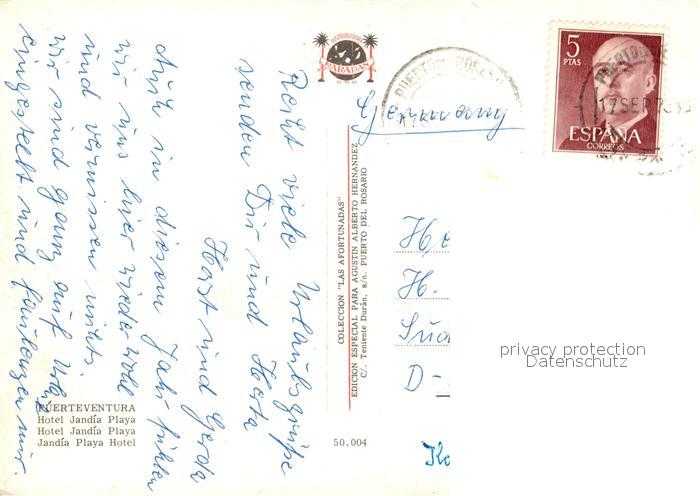 Recht viele Urlaubsgrüße
senden Dir und Herta
Horst und Gerda
Auch in diesem Jahr fühlen
wir uns hier wieder wohl
und vermissen nichts.
Wir sind ganz auf Ruhe
eingestellt und faulenzen nur.
FUERTEVENTURA
Hotel Jandía Playa
Hotel Jandía Playa
Jandía Playa Hotel
50.004
DISTRIBUIDORA
PARADAS
COLECCION "LAS AFORTUNADAS"
EDICION ESPECIAL PARA AGUSTIN ALBERTO HERNANDEZ
C/. Teniente Durán, s/n. PUERTO DEL ROSARIO
Germany
PUERTO DEL ROSARIO
5
PTAS
12 SEP 76
ESPAÑA
CORREOS
H.
D-
privacy protection
Datenschutz